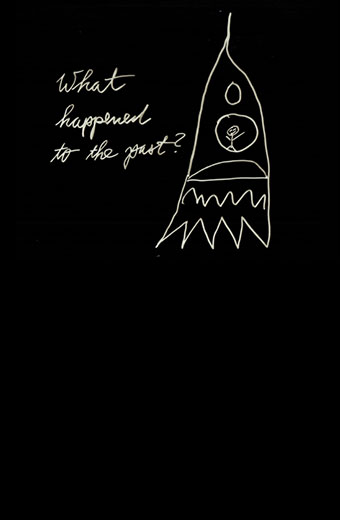 What
happened
to the past?